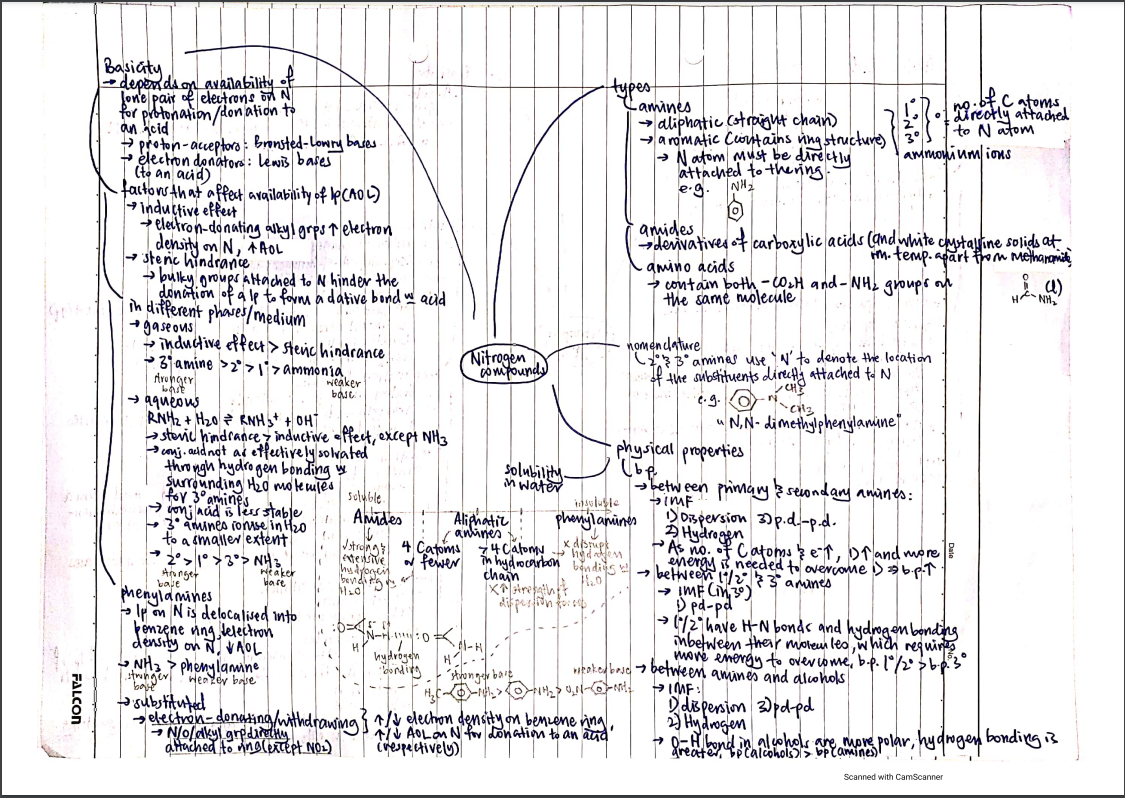 Nitrogen
compounds
types
amines
→ aliphatic (straight chain)
→ aromatic (contains ring structure)
→ N atom must be directly
attached to the ring.
e.g.
NH2
1°
2°
3°
no. of C atoms
directly attached
to N atom
ammonium ions
amides
→ derivatives of carboxylic acids (and white crystalline solids at
rm. temp. apart from methanamide
H NH2 (l)
O
amino acids
→ contain both -CO2H and -NH2 groups on
the same molecule
nomenclature
2° & 3° amines use 'N' to denote the location
of the substituents directly attached to N
e.g.
N
CH3
CH3
"N,N-dimethylphenylamine"
physical properties
b.p.
→ between primary & secondary amines:
→ IMF
1) Dispersion 3) p.d.-p.d.
2) Hydrogen
→ As no. of C atoms & e- ↑, D↑ and more
energy is needed to overcome D ⇒ b.p. ↑
→ between 1°/2° & 3° amines
→ IMF (in 3°)
1) pd-pd
→ 1°/2° have H-N bonds and hydrogen bonding
inbetween their molecules, which requires
more energy to overcome, b.p. 1°/2° > b.p. 3°
→ between amines and alcohols
→ IMF:
1) dispersion 3) pd-pd
2) Hydrogen
→ O-H bond in alcohols are more polar, hydrogen bonding is
greater, bp(alcohols) > bp(amines)
solubility
in water
soluble
insoluble
Amides
Aliphatic
amines
phenylamines
✓ strong &
extensive
hydrogen
bonding w
H2O
4 C atoms
or fewer
>4 C atoms
in hydrocarbon
chain
x ↑ strength of
dispersion forces
x disrupts
hydrogen
bonding w
H2O
O
N-H
H
O
N-H
H
hydrogen
bonding
stronger base
weaker base
H3C NH2 > NH2 > O2N NH2
Basicity
→ depends on availability of
lone pair of electrons on N
for protonation/donation to
an acid
→ proton-acceptors: Bronsted-Lowry bases
→ electron donators: Lewis bases
(to an acid)
factors that affect availability of lp (AOL)
→ inductive effect
→ electron-donating alkyl grps ↑ electron
density on N, ↑ AOL
→ steric hindrance
→ bulky groups attached to N hinder the
donation of a lp to form a dative bond w acid
in different phases/medium
→ gaseous
→ inductive effect > steric hindrance
→ 3° amine > 2° > 1° > ammonia
stronger
base
weaker
base
→ aqueous
RNH2 + H2O ⇌ RNH3+ + OH-
→ steric hindrance > inductive effect, except NH3
→ conj. acid not as effectively solvated
through hydrogen bonding w
surrounding H2O molecules
for 3° amines
→ conj acid is less stable
→ 3° amines ionise in H2O
to a smaller extent
→ 2° > 1° > 3° > NH3
stronger
base
weaker
base
phenylamines
→ lp on N is delocalised into
benzene ring, ↓ electron
density on N, ↓ AOL
→ NH3 > phenylamine
stronger
base
weaker base
→ substituted
→ electron-donating/withdrawing
→ N/O/alkyl grp directly
attached to ring (except NO2)
↑/↓ electron density on benzene ring,
↑/↓ AOL on N for donation to an acid
(respectively)
FALCON
Date
Scanned with CamScanner